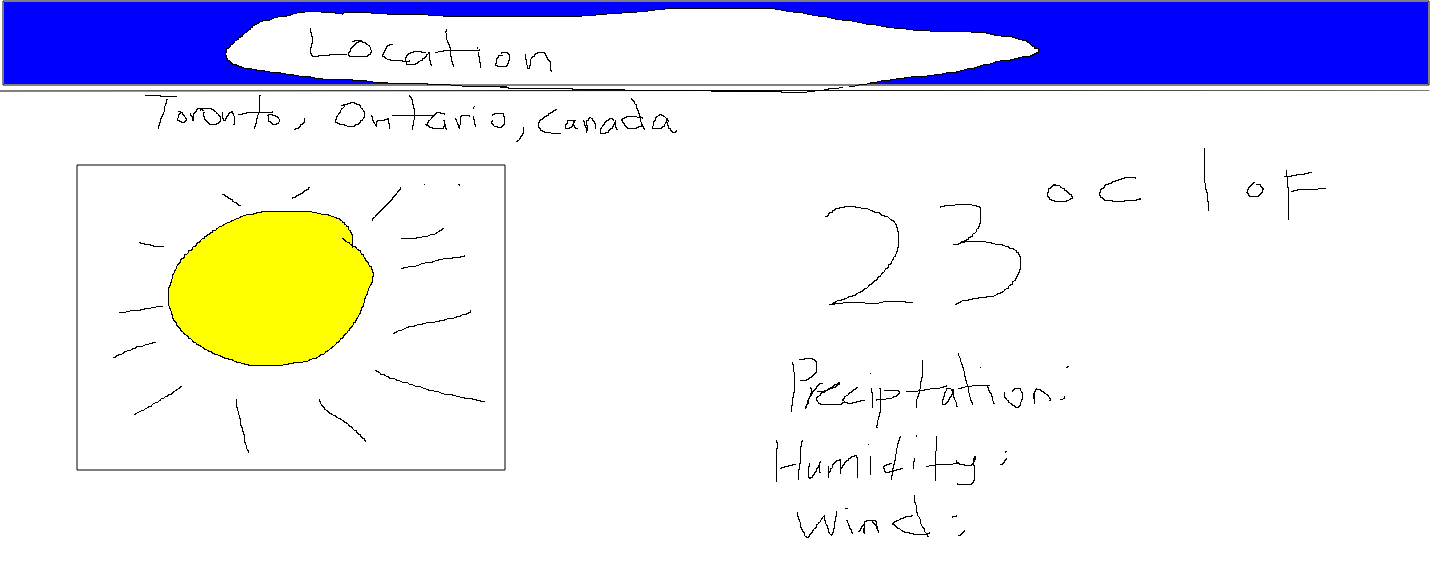 Location
Toronto, Ontario, Canada
23 °C | °F
Preciptation:
Humidity:
Wind: